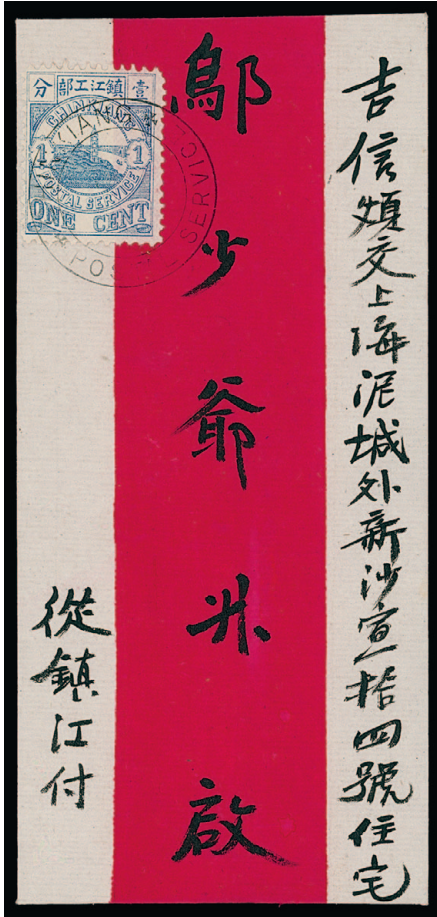 吉信煩交上海泥城外新沙宣拾四號住宅
鄔少爺升啟
從鎮江付
分部工江鎮壹
CHINKIANG
1 1
POSTAL SERVICE
ONE CENT
KIANG
POS L SERVIC